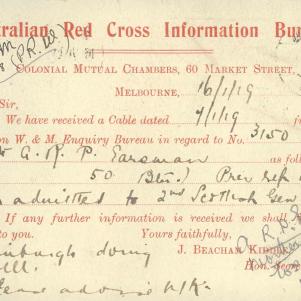 tralian Red Cross Information Bu
(P.R.W)
Colonial Mutual Chambers, 60 Market Street,
Melbourne, 16/1/19
Sir,
We have received a Cable dated 7/1/19 f
on W. & M. Enquiry Bureau in regard to No. 3150
G. R. P. Earsman as fol
50 Btn.) Prev ref
admitted to 2nd Scottish Gen
If any further information is received we shall
Yours faithfully,
inburgh doing J. Beacham Kidd
ell. Hon. Secr
ease advise N/K.